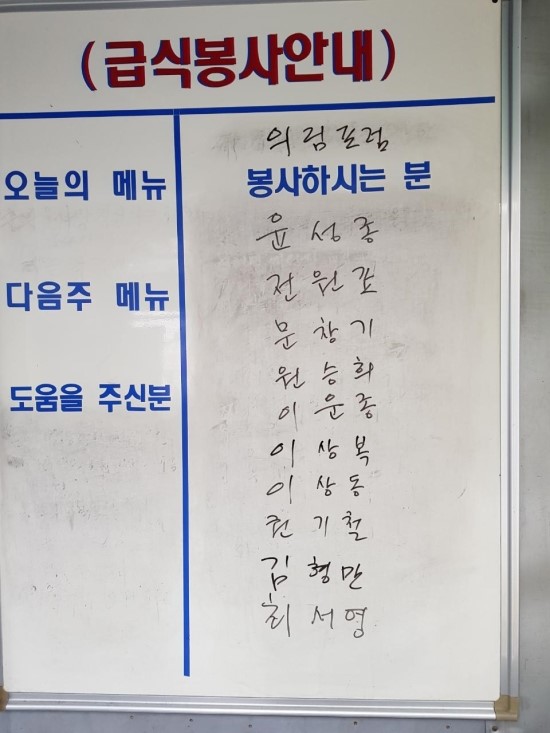 (급식봉사안내)
오늘의 메뉴
다음주 메뉴
도움을 주신분
의림포럼
봉사하시는 분
윤성종
전원표
문창기
원승희
이운종
이상복
이상동
권기철
김형만
최서영